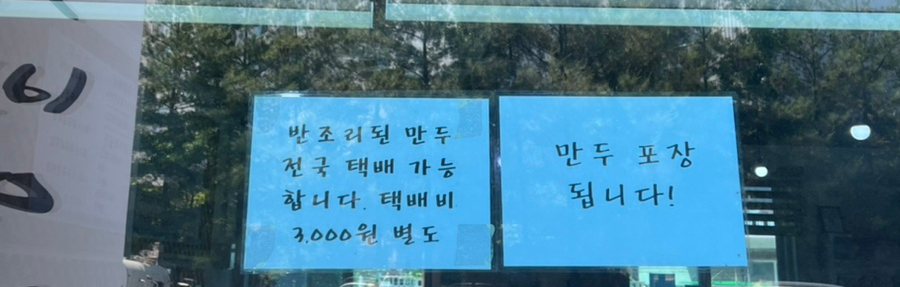 반조리된 만두
전국 택배 가능
합니다. 택배비
3,000원 별도
만두 포장
됩니다!